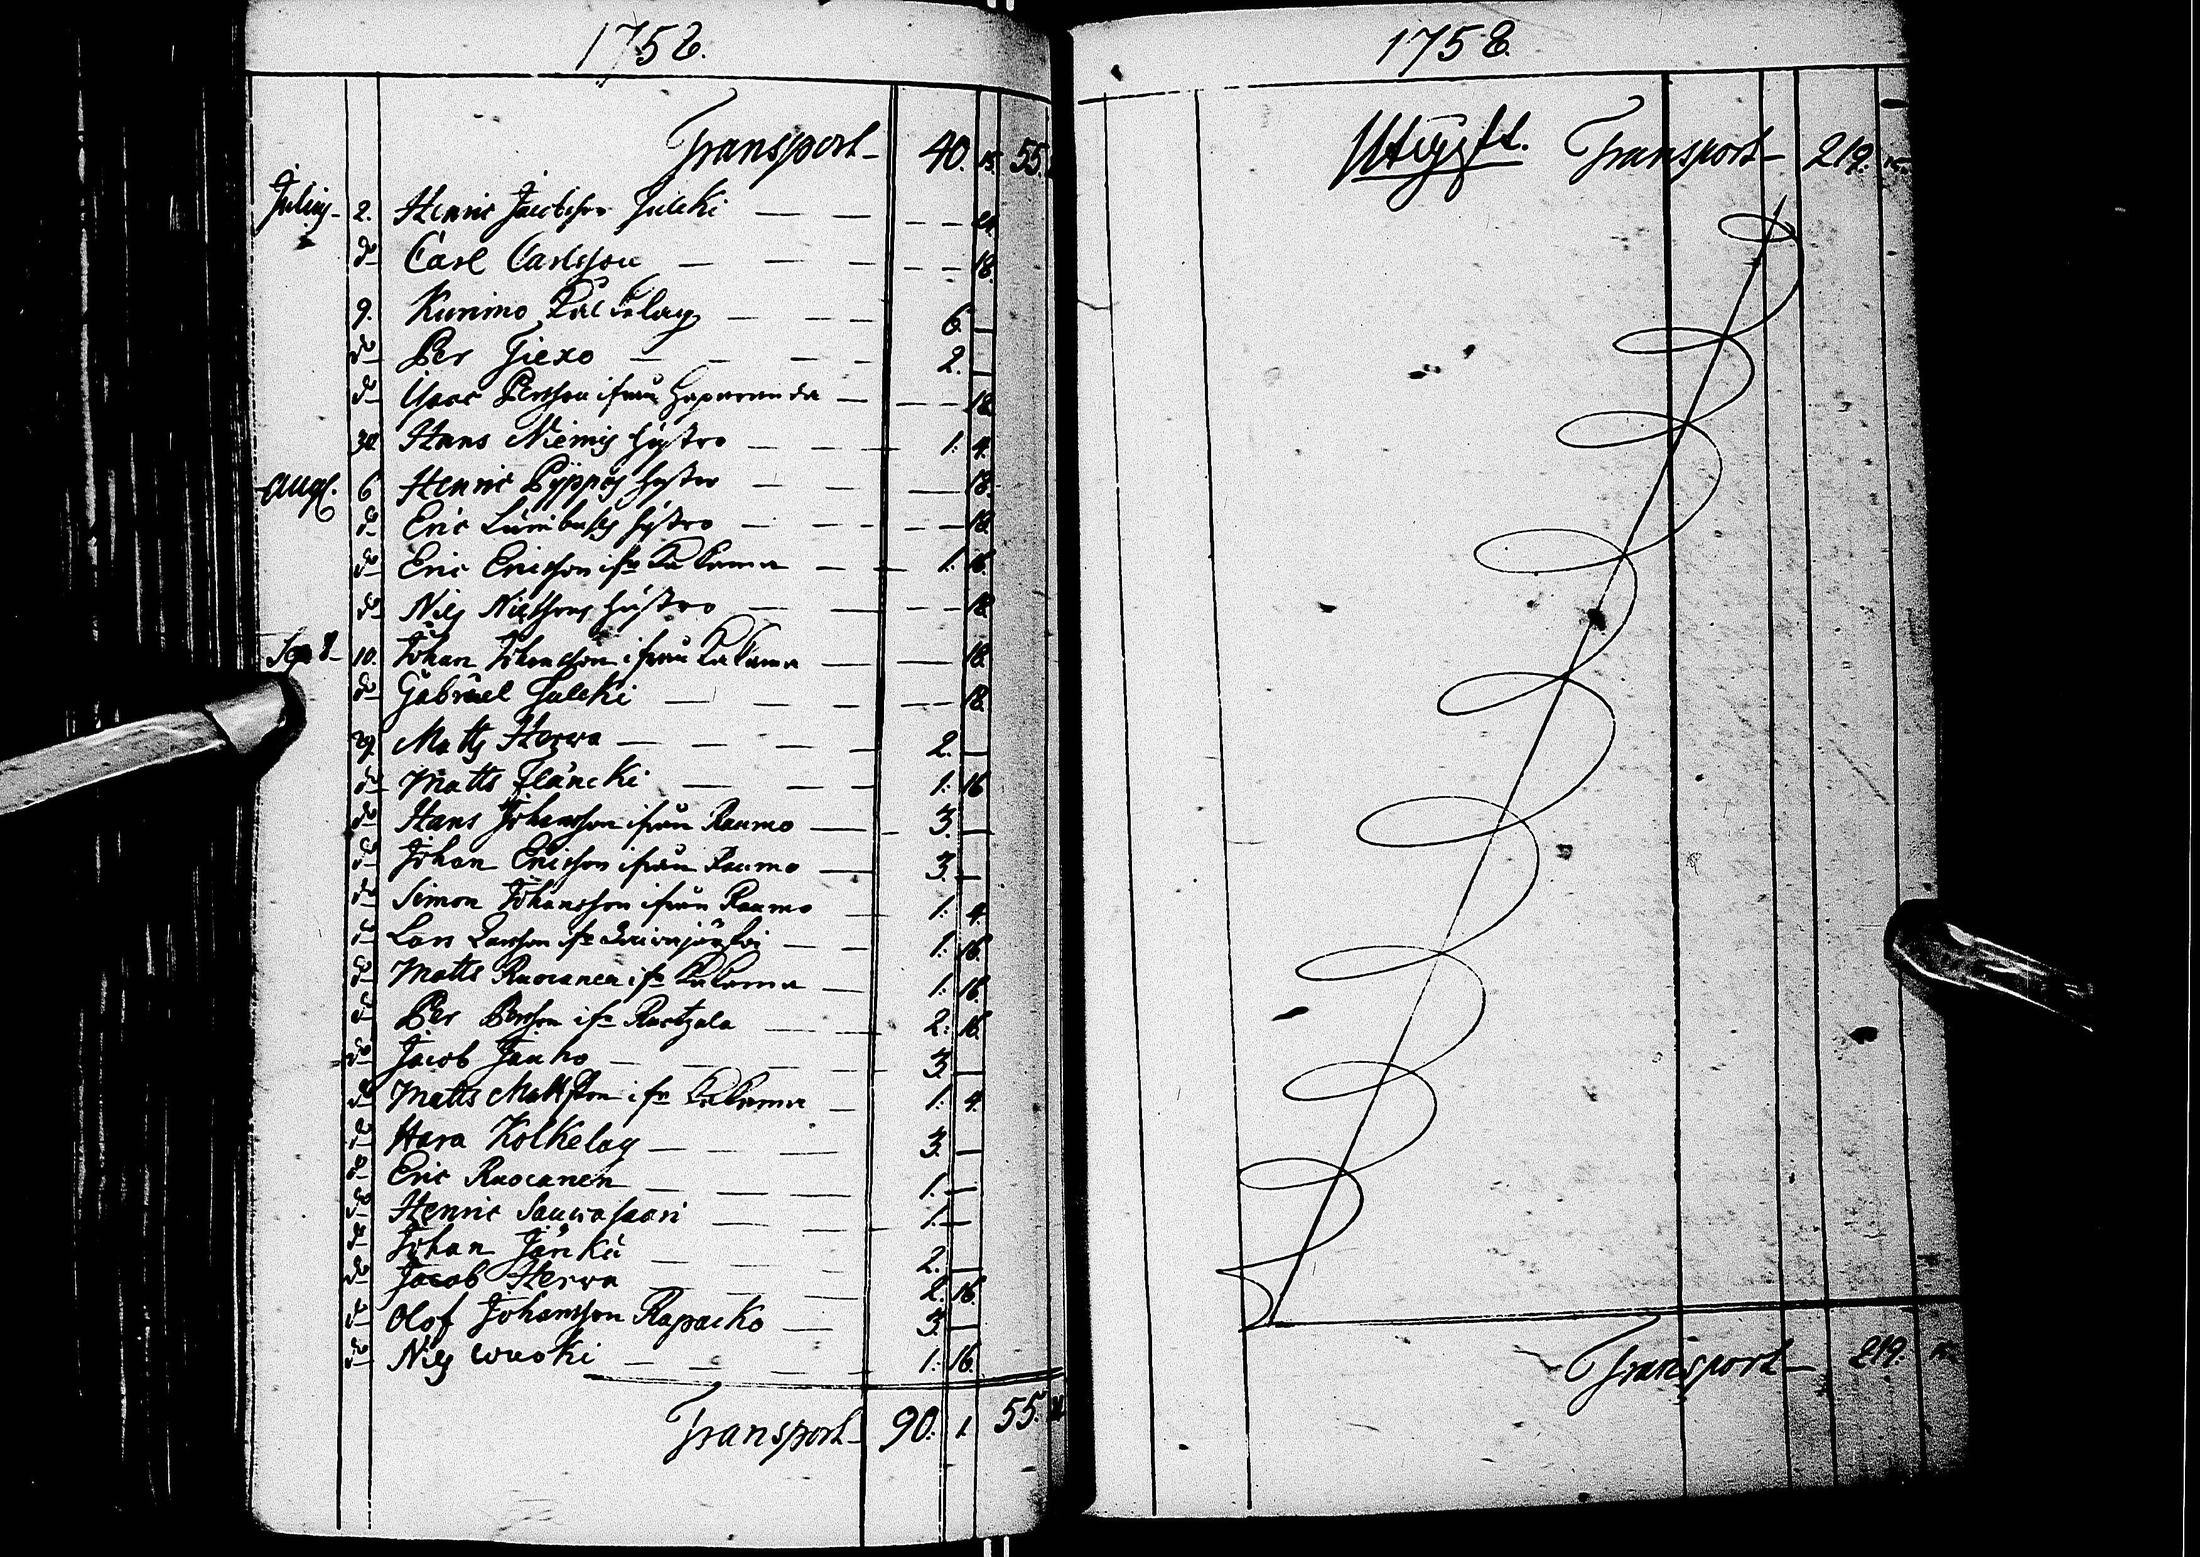 1758.
Transport 40. 15. 55.
Julius 2. Henric Jacobsson Juleki — — — 24.
do Carl Carlsson — — — 18.
9. Kurimo — — — 6. —
do Per Jiexo — — — 2. —
do Isaac Persson ifrån Haparanda — — 18.
30. Hans Niemis hustro — — 1. 4.
Aug. 6 Henric Pyppös hustro — — 18.
do Eric hustro — — 18.
do Eric Ericsson ifr. Kakama — — 1. 16.
do Nils Nilssons hustro — — 18.
10. Johan Johansson ifrån Kakama — — 18.
do Gabriel Juleki — — — 18.
29. Matts Herva — — — 2. —
do Matts Fläncki — — — 1. 16
do Hans Johansson ifrån Raumo — 3. —
do Johan Ericsson ifrån Raumo — 3. —
do Simon Johansson ifrån Raumo — 1. 4.
do Lars Larsson ifr. — 1. 16.
do Matts Ruocanen ifr. Kakama — 1. 16.
do Per Persson ifr. — 2. 16.
do Jacob Jauho — — — 3. —
do Matts Mattsson ifr. Kakama — 1. 4.
do Hara Kolkelag — — — 3. —
do Eric Ruocanen — — — 1. —
do Henric Sauvasaari — — 1. —
do Johan Jänkä — — — 2. —
do Jacob Herva — — — 2. 16.
do Olof Johansson Rapacko — 3. —
do Nils Wuoki — — — 1. 16.
Transport 90. 1. 55.
1758.
Utgift. Transport 219.
Transport 219.